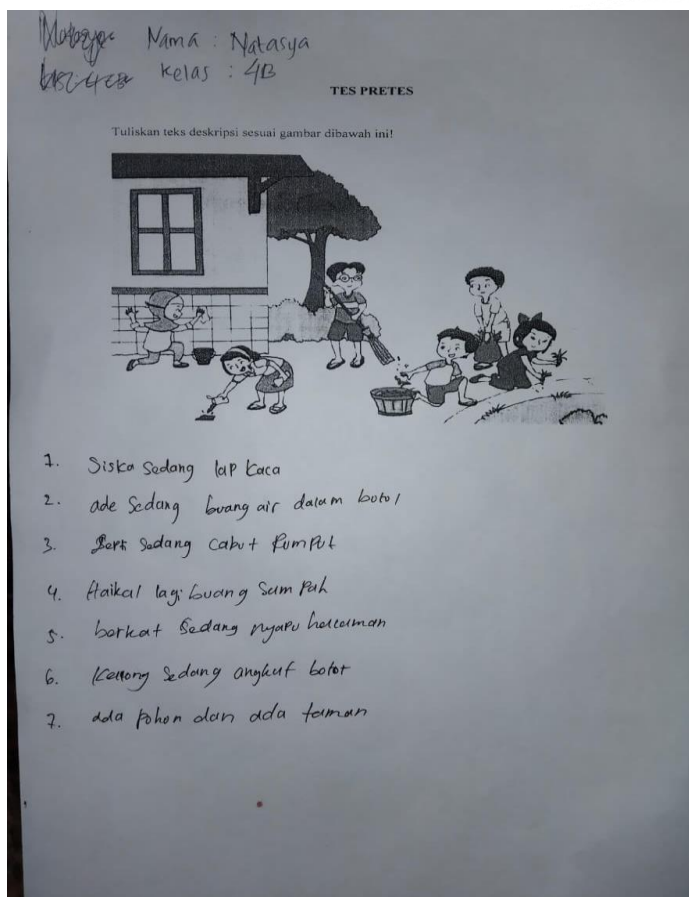 Nama : Natasya
Kelas : 4B
TES PRETES
Tuliskan teks deskripsi sesuai gambar dibawah ini!
1. Siska Sedang lap kaca
2. ade Sedang buang air dalam botol
3. Sedang Cabut Rumput
4. Haikal lagi buang Sampah
5. berkat Sedang nyapu
6. Sedang angkut botot
7. ada pohon dan ada taman